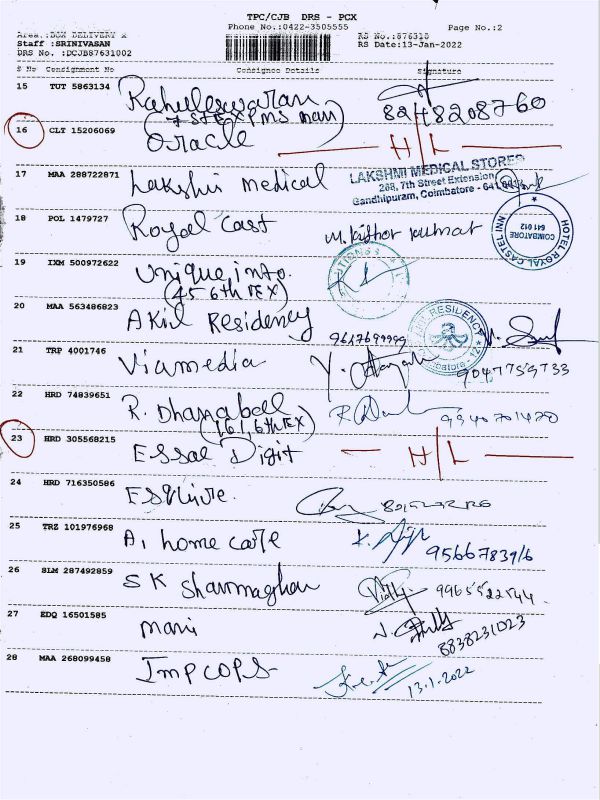 TPC/CJB DRS - PCX
Phone No.:0422-3505555
Page No.:2
Area :BOX DELIVERY X
Staff :SRINIVASAN
DRS No. :DCJB87631002
RS No.:876310
RS Date:13-Jan-2022
S No Consignment No Consignee Details Signature
15 TUT 5863134 Rahuleswaran 8248208760
16 CLT 15206069 Oracle H/L
17 MAA 288722871 Lakshmi medical
LAKSHMI MEDICAL STORES
268, 7th Street Extension,
Gandhipuram, Coimbatore -
18 POL 1479727 Royal Cast M. Kishor Kumar
HOTEL ROYAL CASTEL INN
COIMBATORE
641 012
19 IXM 500972622 Unique info.
(45 6th EX)
20 MAA 563486823 Akil Residency
21 TRP 4001746 Viamedia 9047759733
22 HRD 74839651 R. Dhanabal
(161, 6th EX)
23 HRD 305568215 Essae Digit H/L
24 HRD 716350586 Esquire.
25 TRZ 101976968 A1 home care 9566783916
26 SLM 287492859 SK Shanmugham
27 EDQ 16501585 mani 8838231023
28 MAA 268099458 IMPCOPS 13.1.2022